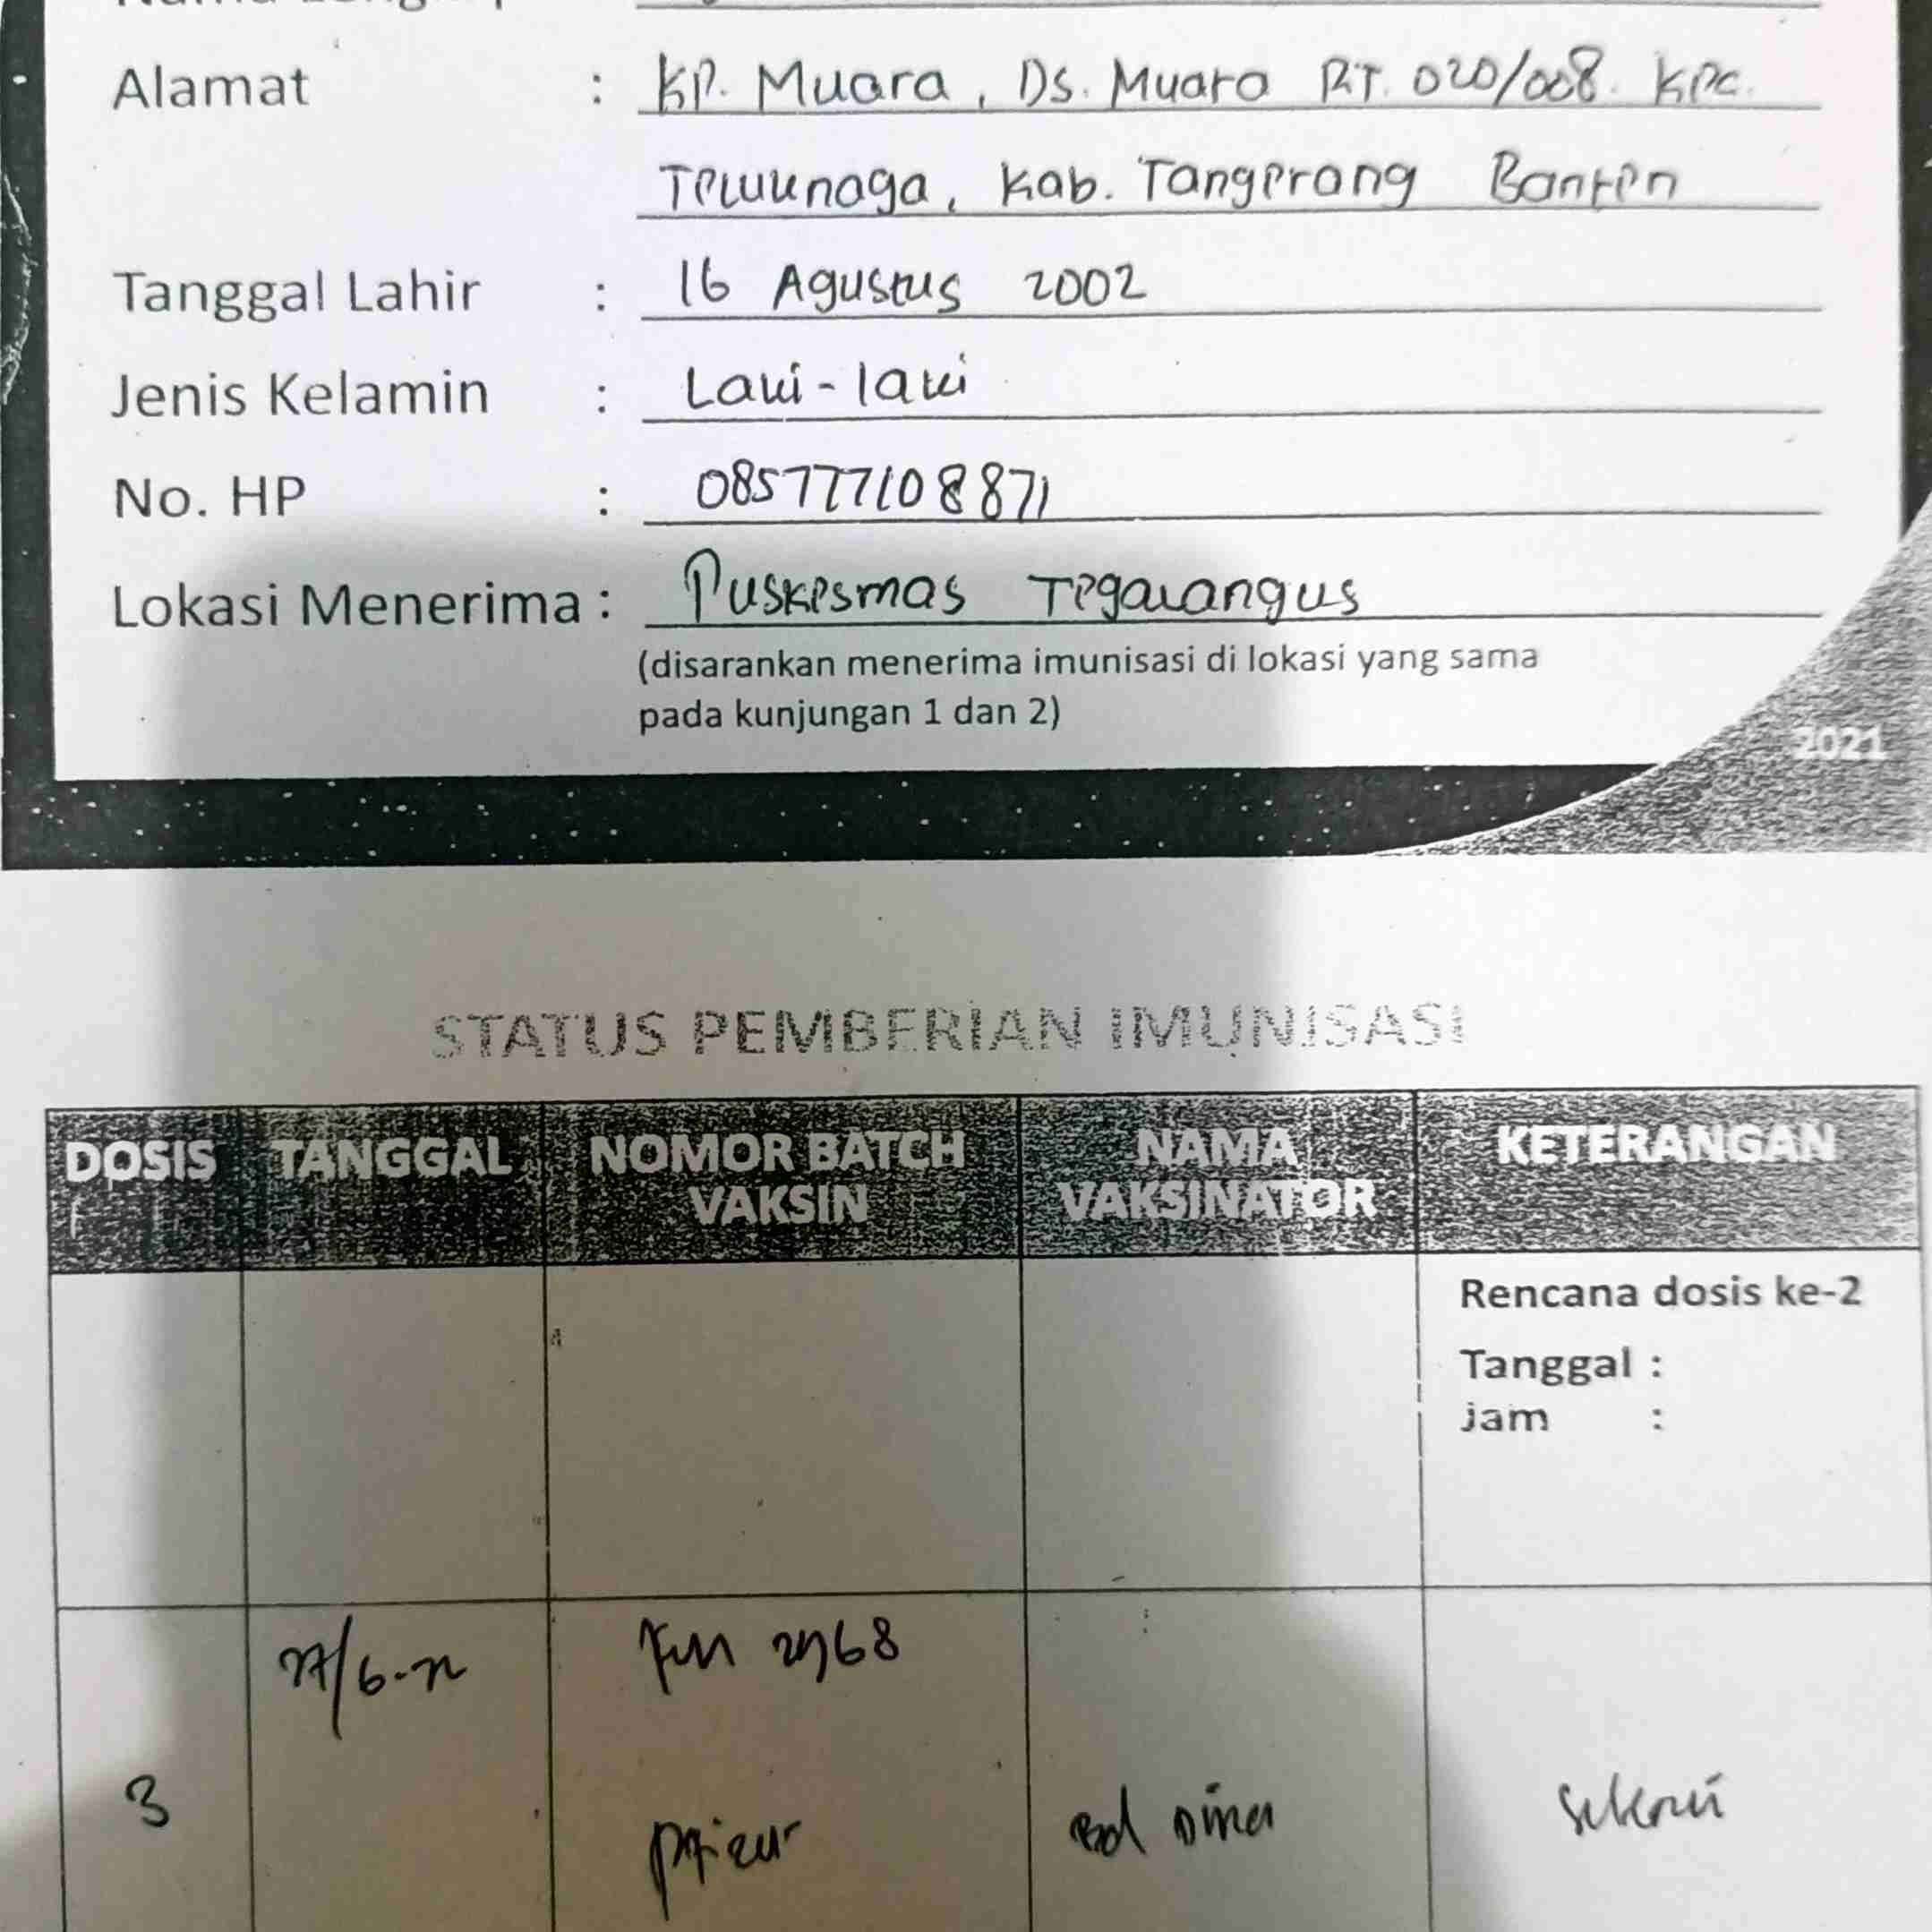 Alamat : Kp. Muara, Ds. Muara RT. 020/008. Kec.
Teluknaga, Kab. Tangerang Banten
Tanggal Lahir : 16 Agustus 2002
Jenis Kelamin : Laki-laki
No. HP : 085777108871
Lokasi Menerima : Puskesmas Tegalangus
(disarankan menerima imunisasi di lokasi yang sama
pada kunjungan 1 dan 2)
2021
STATUS PEMBERIAN IMUNISASI
DOSIS TANGGAL NOMOR BATCH VAKSIN NAMA VAKSINATOR KETERANGAN
Rencana dosis ke-2
Tanggal :
jam :
3